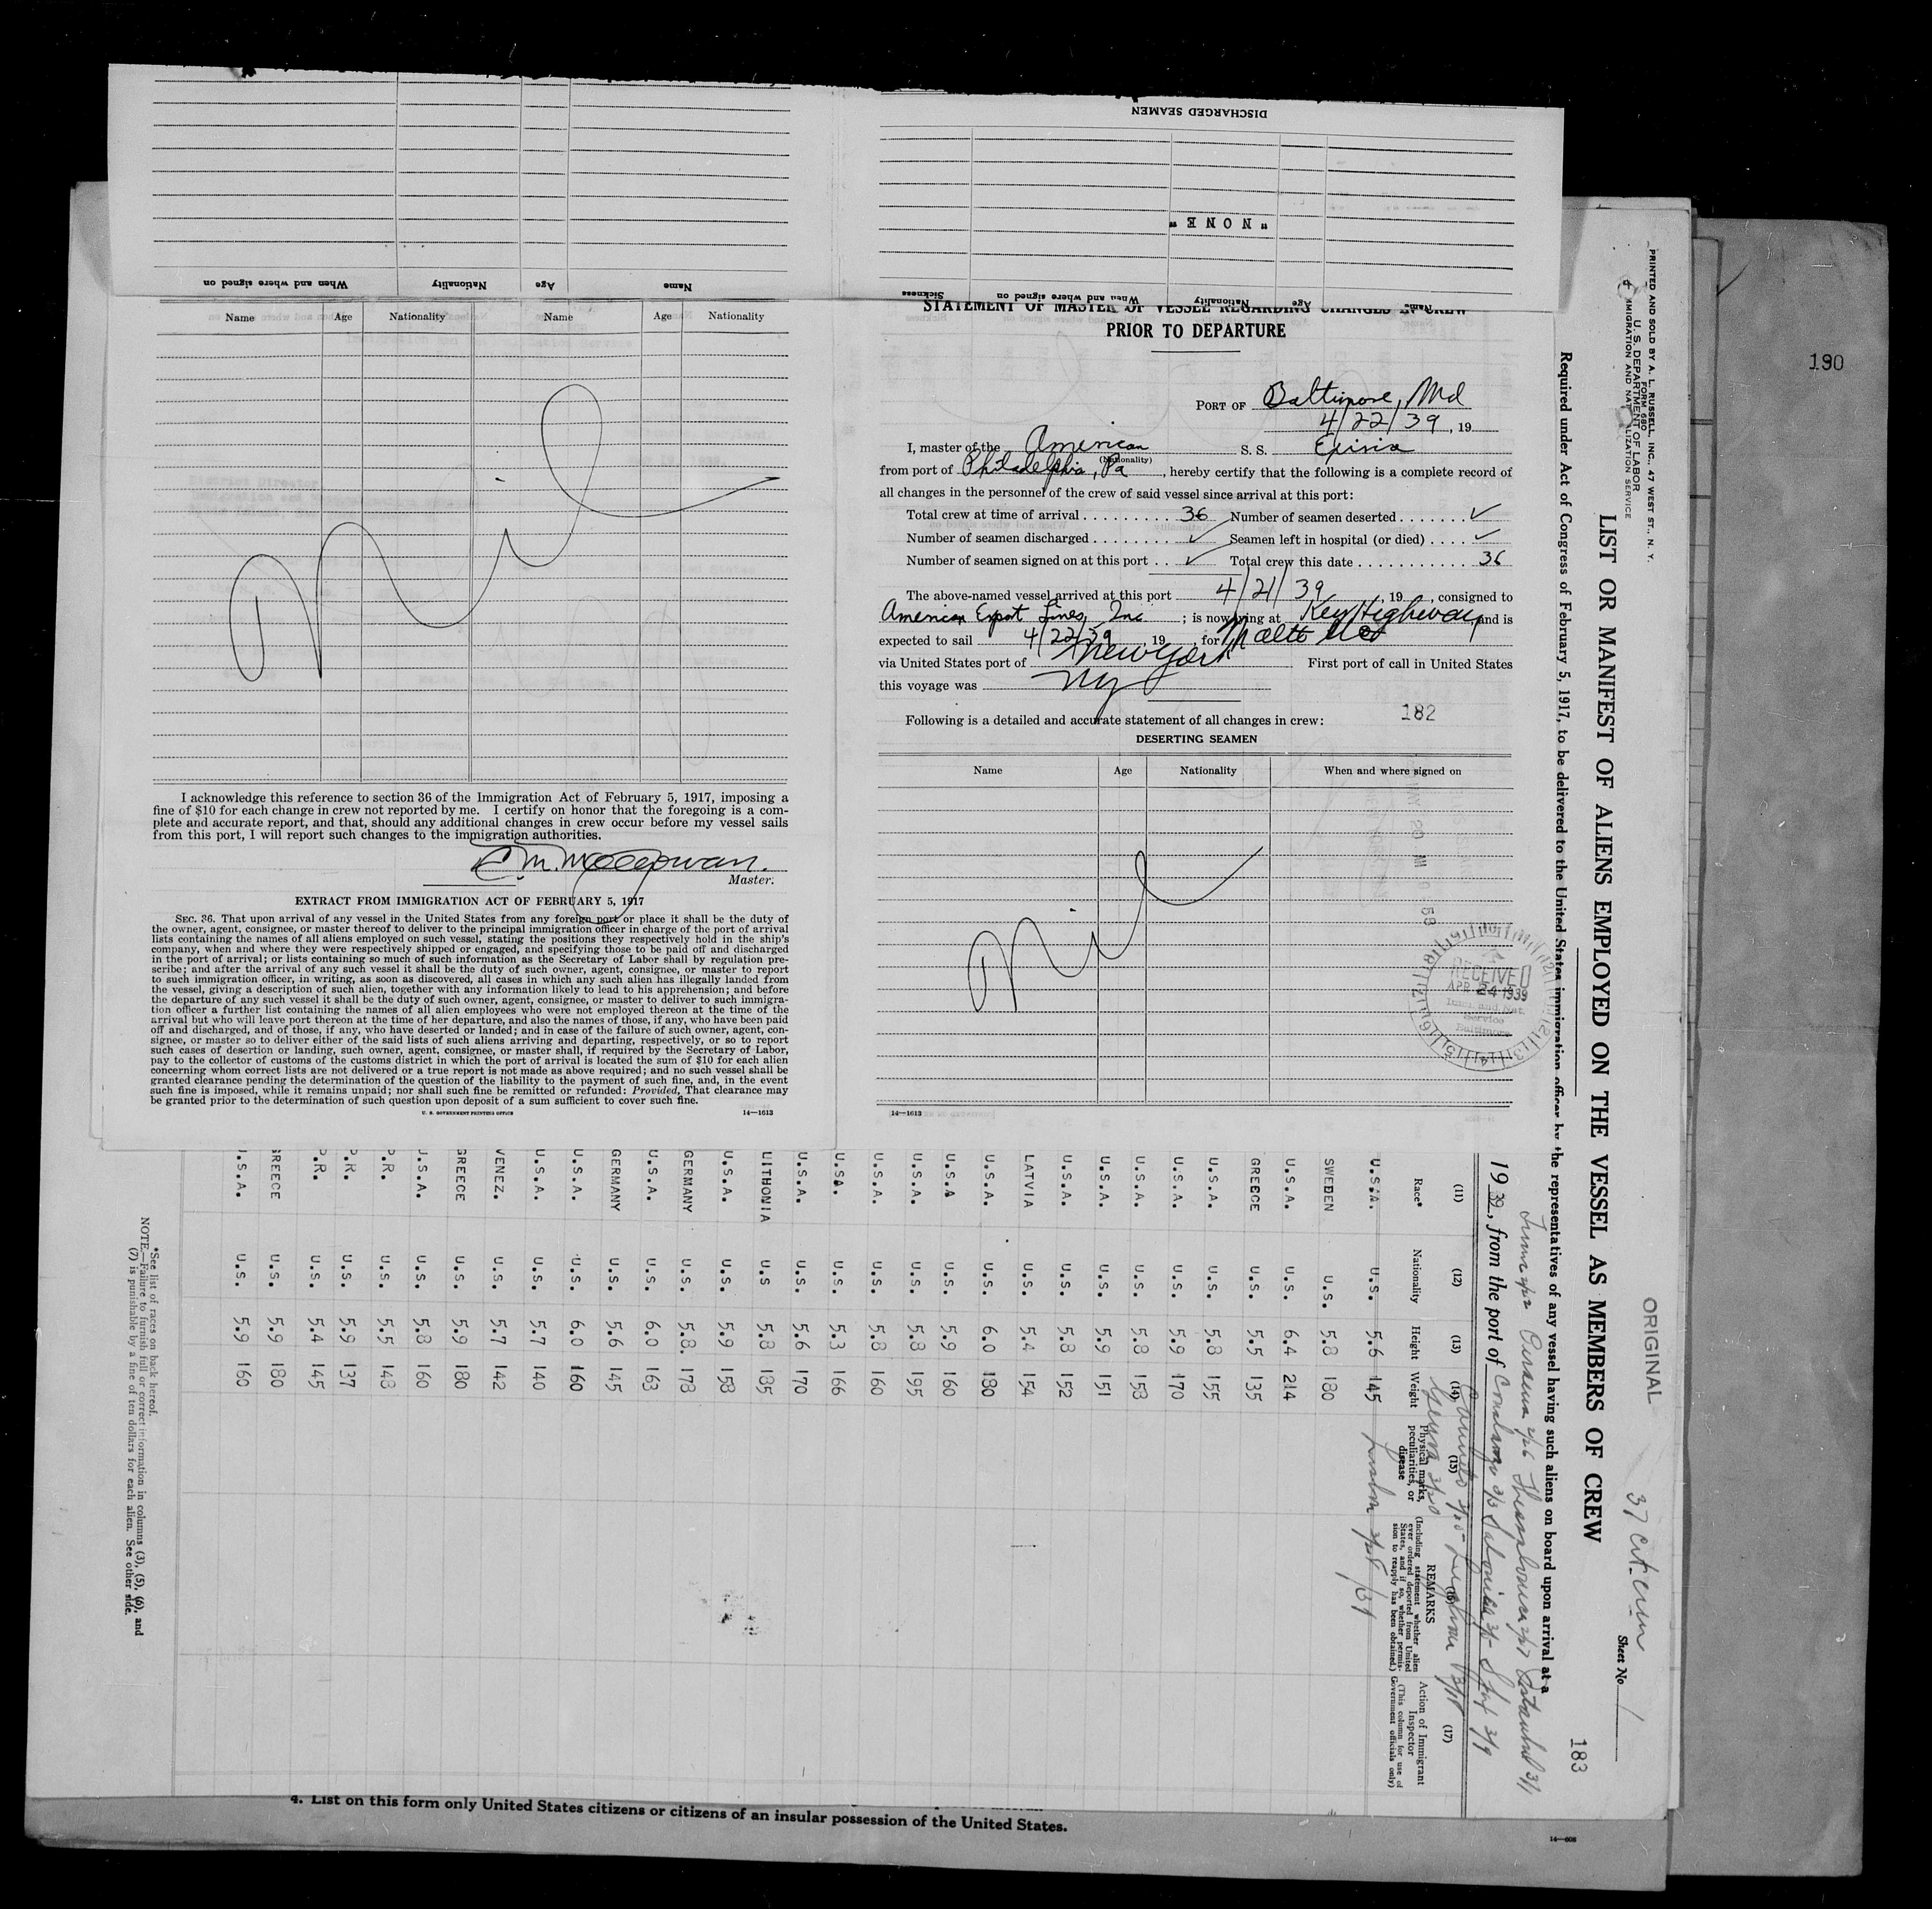 DISCHARGED SEAMEN
"NONE"
Name Age Nationality When and where signed on Sickness
Name Age Nationality When and where signed on
Name Age Nationality Name Age Nationality
I acknowledge this reference to section 36 of the Immigration Act of February 5, 1917, imposing a
fine of $10 for each change in crew not reported by me. I certify on honor that the foregoing is a com-
plete and accurate report, and that, should any additional changes in crew occur before my vessel sails
from this port, I will report such changes to the immigration authorities.
Master.
EXTRACT FROM IMMIGRATION ACT OF FEBRUARY 5, 1917
SEC. 36. That upon arrival of any vessel in the United States from any foreign port or place it shall be the duty of
the owner, agent, consignee, or master thereof to deliver to the principal immigration officer in charge of the port of arrival
lists containing the names of all aliens employed on such vessel, stating the positions they respectively hold in the ship's
company, when and where they were respectively shipped or engaged, and specifying those to be paid off and discharged
in the port of arrival; or lists containing so much of such information as the Secretary of Labor shall by regulation pre-
scribe; and after the arrival of any such vessel it shall be the duty of such owner, agent, consignee, or master to report
to such immigration officer, in writing, as soon as discovered, all cases in which any such alien has illegally landed from
the vessel, giving a description of such alien, together with any information likely to lead to his apprehension; and before
the departure of any such vessel it shall be the duty of such owner, agent, consignee, or master to deliver to such immigra-
tion officer a further list containing the names of all alien employees who were not employed thereon at the time of the
arrival but who will leave port thereon at the time of her departure, and also the names of those, if any, who have been paid
off and discharged, and of those, if any, who have deserted or landed; and in case of the failure of such owner, agent, con-
signee, or master so to deliver either of the said lists of such aliens arriving and departing, respectively, or so to report
such cases of desertion or landing, such owner, agent, consignee, or master shall, if required by the Secretary of Labor,
pay to the collector of customs of the customs district in which the port of arrival is located the sum of $10 for each alien
concerning whom correct lists are not delivered or a true report is not made as above required; and no such vessel shall be
granted clearance pending the determination of the question of the liability to the payment of such fine, and, in the event
such fine is imposed, while it remains unpaid; nor shall such fine be remitted or refunded: Provided, That clearance may
be granted prior to the determination of such question upon deposit of a sum sufficient to cover such fine.
U. S. GOVERNMENT PRINTING OFFICE 14—1613
STATEMENT OF MASTER OF VESSEL REGARDING CHANGES IN CREW
PRIOR TO DEPARTURE
PORT OF Baltimore, Md
4/22/39, 19
I, master of the American S. S. Exiria
(Nationality)
from port of Philadelphia, Pa, hereby certify that the following is a complete record of
all changes in the personnel of the crew of said vessel since arrival at this port:
Total crew at time of arrival 36 Number of seamen deserted ✓
Number of seamen discharged ✓ Seamen left in hospital (or died) ✓
Number of seamen signed on at this port ✓ Total crew this date 36
The above-named vessel arrived at this port 4/21/39 19, consigned to
American Export Lines, Inc; is now lying at Key Highway, and is
expected to sail 4/22/39, 19, for
via United States port of New York First port of call in United States
this voyage was NY
Following is a detailed and accurate statement of all changes in crew: 182
DESERTING SEAMEN
Name Age Nationality When and where signed on
Nil
RECEIVED
APR 24 1939
Immi. and Nat.
Service
Baltimore
14—1613
190
PRINTED AND SOLD BY A. L. RUSSELL, INC., 47 WEST ST., N. Y.
FORM 680
U. S. DEPARTMENT OF LABOR
IMMIGRATION AND NATURALIZATION SERVICE
ORIGINAL 37 citizen
Sheet No 1
183
LIST OR MANIFEST OF ALIENS EMPLOYED ON THE VESSEL AS MEMBERS OF CREW
Required under Act of Congress of February 5, 1917, to be delivered to the United States immigration officer by the representatives of any vessel having such aliens on board upon arrival at a
1939, from the port of
(11) (12) (13) (14) (15) (16) (17)
Race* Nationality Height Weight Physical marks, peculiarities, or disease REMARKS (Including statement whether alien ever ordered deported from United States, and if so, whether permission to reapply has been obtained.) Action of Immigrant Inspector (This column for use of Government officials only)
U.S.A. U.S. 5.6 145
SWEDEN U.S. 5.8 180
U.S.A. U.S. 6.4 214
GREECE U.S. 5.5 135
U.S.A. U.S. 5.8 155
U.S.A. U.S. 5.9 170
U.S.A. U.S. 5.8 153
U.S.A. U.S. 5.9 151
U.S.A. U.S. 5.8 152
LATVIA U.S. 5.4 154
U.S.A. U.S. 6.0 180
U.S.A U.S. 5.9 160
U.S.A. U.S. 5.8 195
U.S.A. U.S. 5.8 160
U.S.A. U.S. 5.3 166
U.S.A. U.S. 5.6 170
LITHONIA U.S 5.8 185
U.S.A. U.S. 5.9 158
GERMANY U.S. 5.8. 178
U.S.A. U.S. 6.0 163
GERMANY U.S. 5.6 145
U.S.A. U.S. 6.0 160
U.S.A. U.S. 5.7 140
VENEZ. U.S. 5.7 142
GREECE U.S. 5.9 180
U.S.A. U.S. 5.8 160
P.R. U.S. 5.5 148
P.R. U.S. 5.9 137
P.R. U.S. 5.4 145
GREECE U.S. 5.9 180
U.S.A. U.S. 5.9 160
*See list of races on back hereof.
NOTE.—Failure to furnish full or correct information in columns (3), (5), (6), and
(7) is punishable by a fine of ten dollars for each alien. See other side.
4. List on this form only United States citizens or citizens of an insular possession of the United States.
14—608